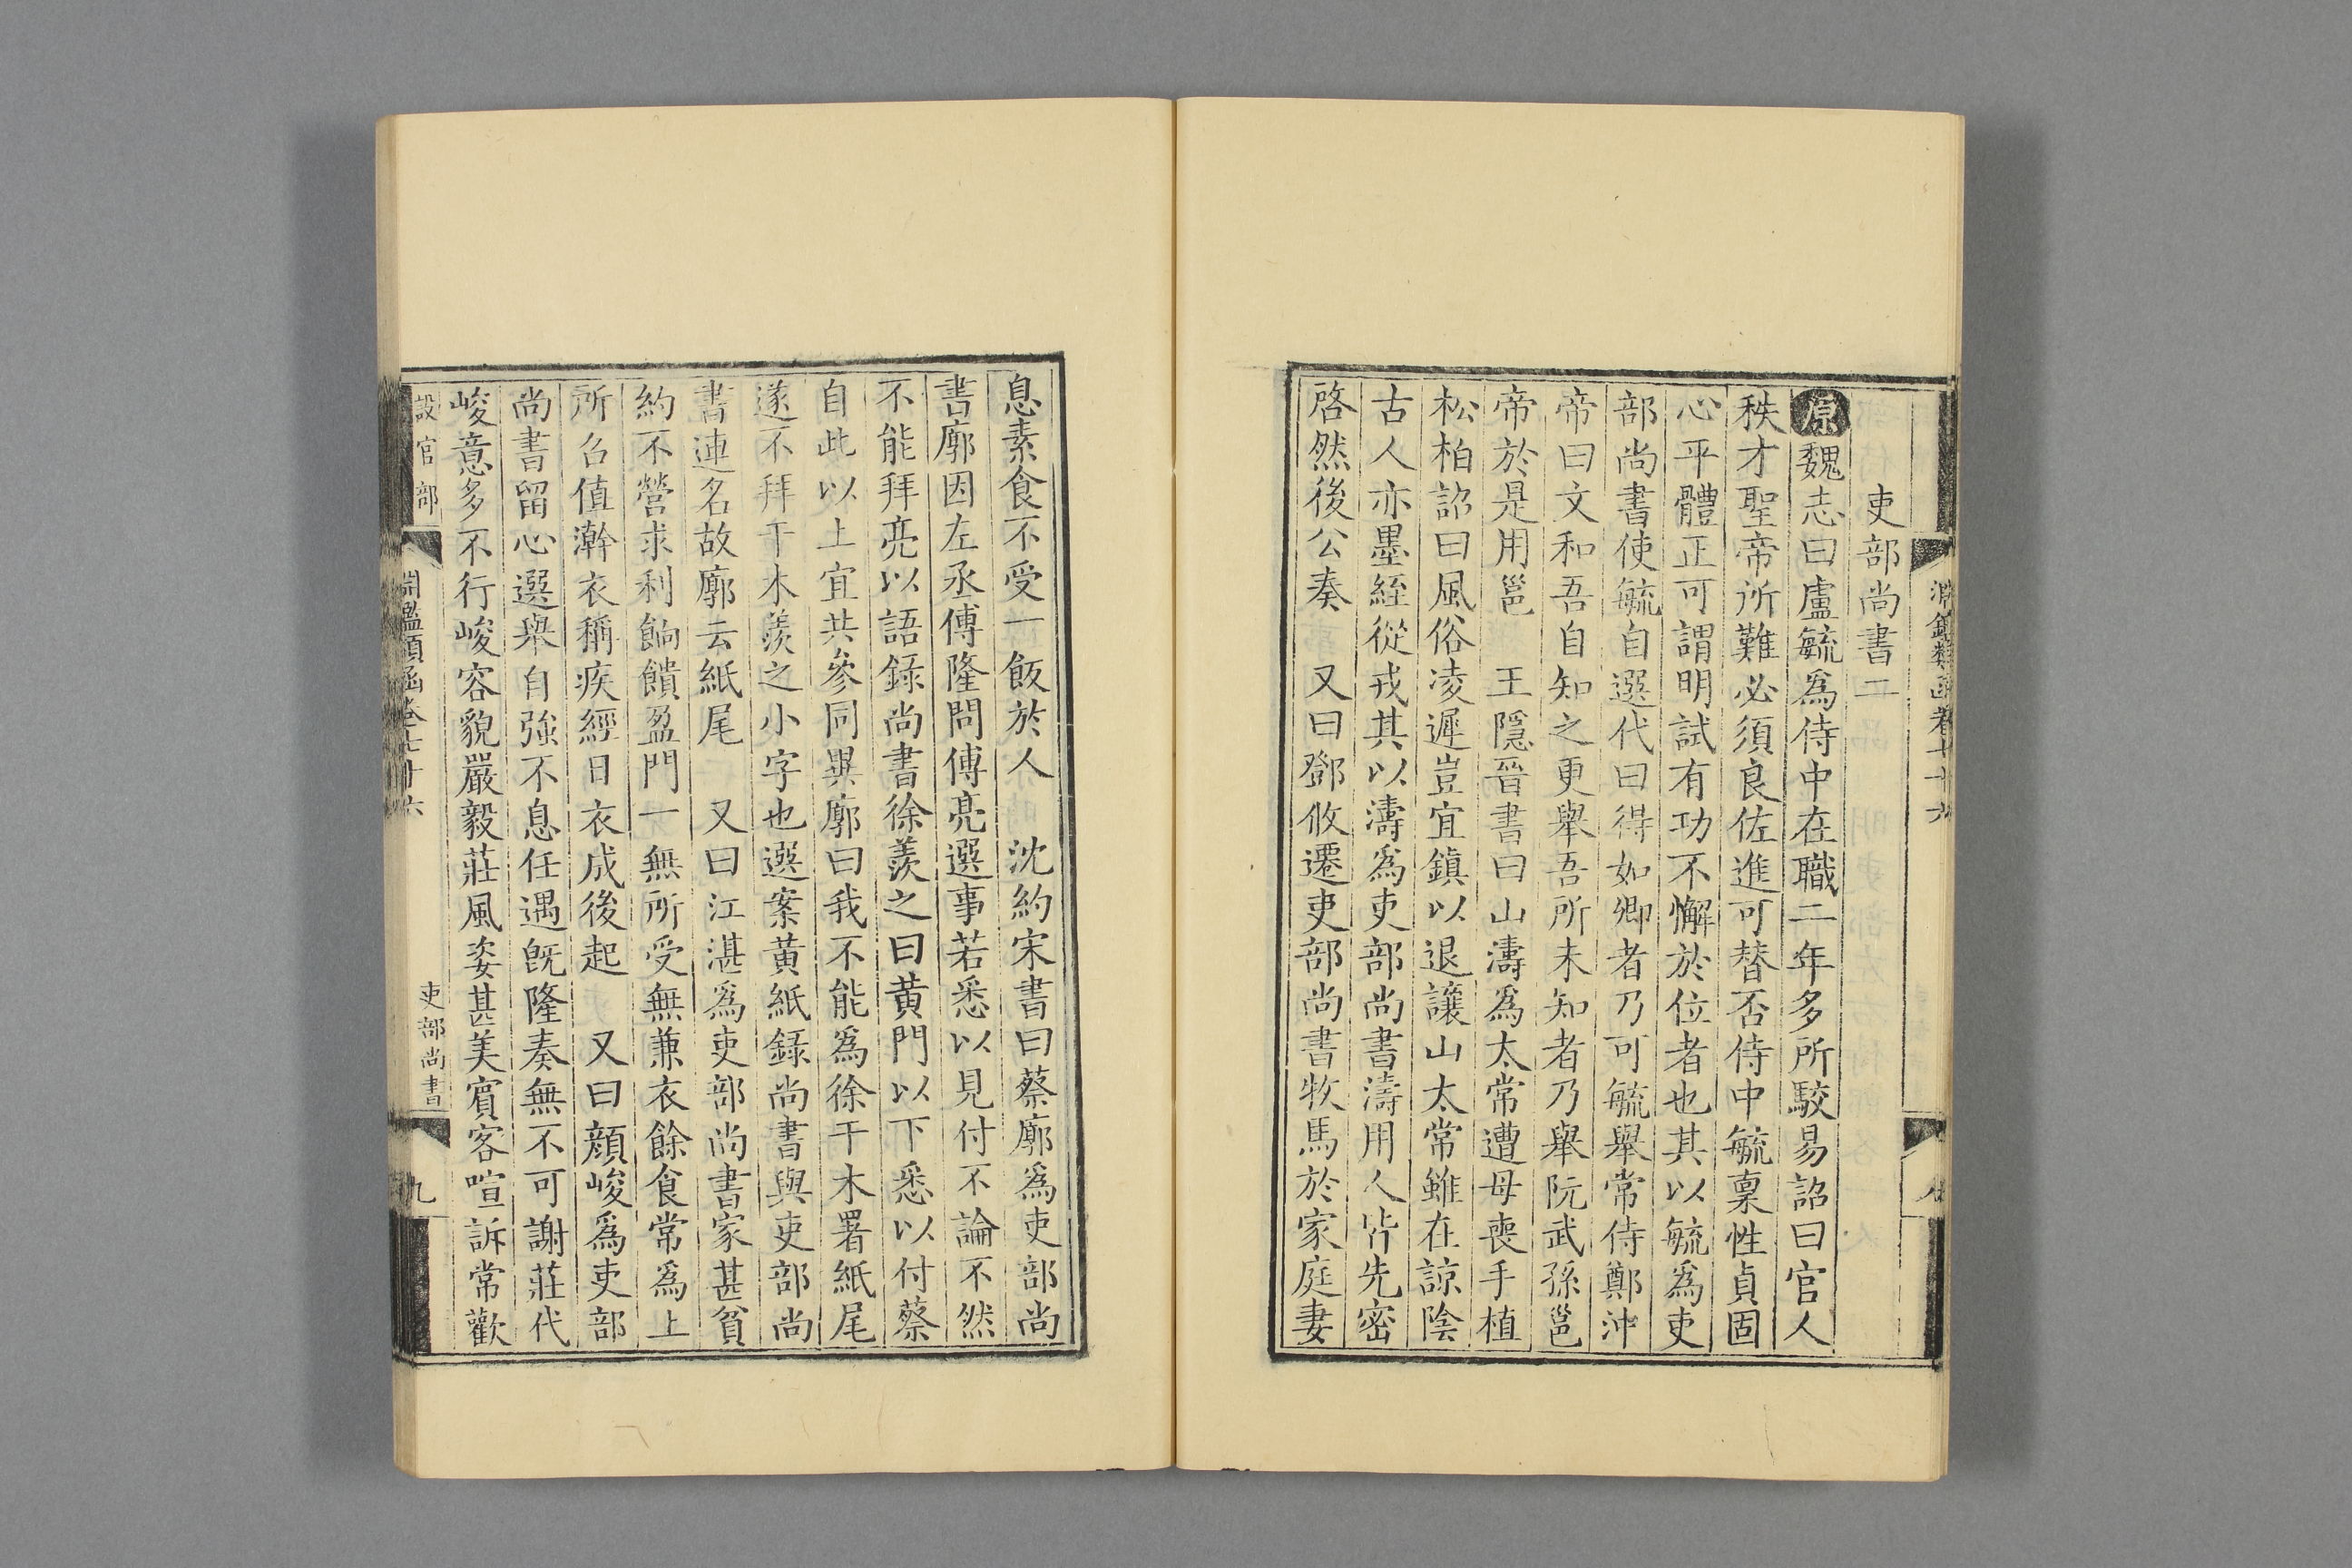 吏部尚書二
原魏志曰盧毓爲侍中在職二年多所駮易詔曰官人
秩才聖帝所難必須良佐進可替否侍中毓稟性貞固
心平體正可謂明試有功不懈於位者也其以毓爲吏
部尚書使毓自選代曰得如卿者乃可毓舉常侍鄭沖
帝曰文和吾自知之更舉吾所未知者乃舉阮武孫邕
帝於是用邕 王隱晉書曰山濤爲太常遭母喪手植
松柏詔曰風俗凌遲豈宜鎮以退讓山太常雖在諒陰
古人亦墨絰從戎其以濤爲吏部尚書濤用人皆先密
啓然後公奏 又曰鄧攸遷吏部尚書牧馬於家庭妻
息素食不受一飯於人 沈約宋書曰蔡廓爲吏部尚
書廓因左丞傅隆問傅亮選事若悉以見付不論不然
不能拜亮以語錄尚書徐羨之曰黃門以下悉以付蔡
自此以上宜共參同異廓曰我不能爲徐干木署紙尾
遂不拜干木羨之小字也選案黃紙錄尚書與吏部尚
書連名故廓云紙尾 又曰江湛爲吏部尚書家甚貧
約不營求利餉饋盈門一無所受無兼衣餘食常爲上
所召值澣衣稱疾經日衣成後起 又曰顏峻爲吏部
尚書留心選舉自強不息任遇既隆奏無不可謝莊代
峻意多不行峻容貌嚴毅莊風姿甚美賓客喧訴常歡
設官部
淵鑑類函卷七十六
吏部尚書
九